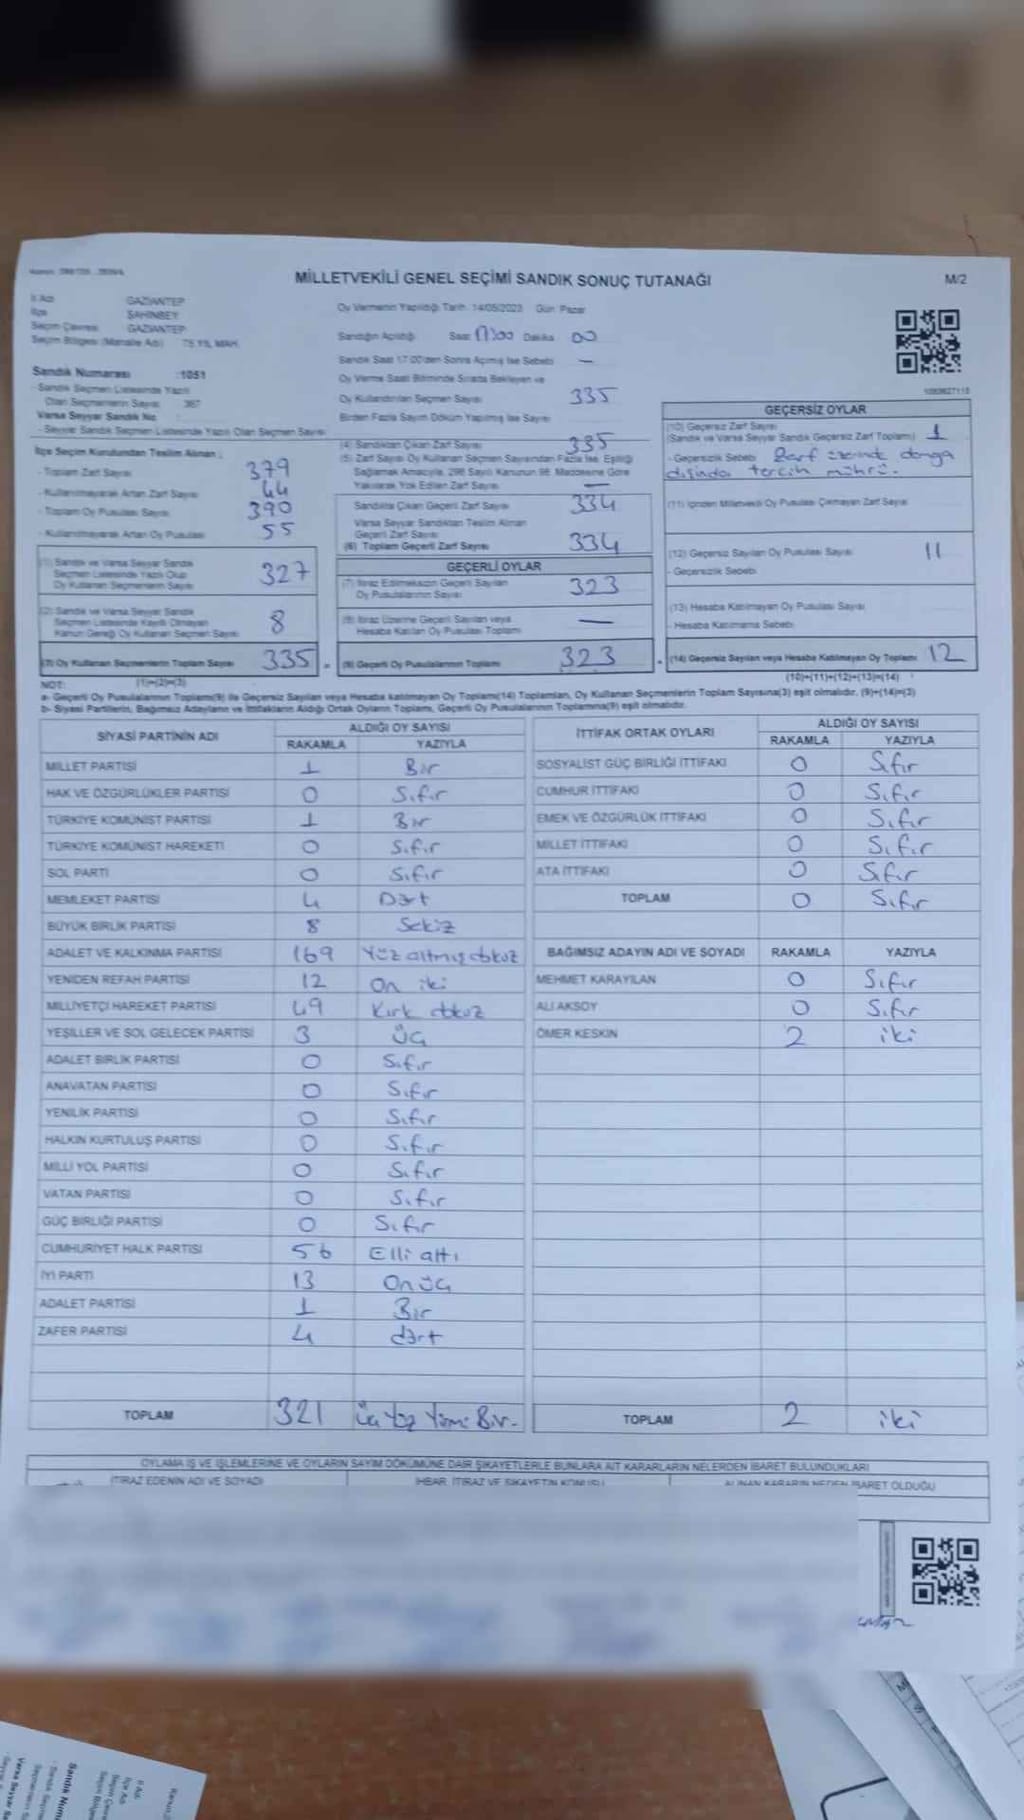 MİLLETVEKİLİ GENEL SEÇİMİ SANDIK SONUÇ TUTANAĞI
M/2
İl Adı GAZİANTEP
İlçe ŞAHİNBEY
Seçim Çevresi GAZİANTEP
Seçim Bölgesi (Mahalle Adı) 75.YIL MAH.
Sandık Numarası :1051
Sandık Seçmen Listesinde Yazılı
Olan Seçmenlerin Sayısı 367
Varsa Seyyar Sandık No
- Seyyar Sandık Seçmen Listesinde Yazılı Olan Seçmen Sayısı
İlçe Seçim Kurulundan Teslim Alınan :
- Toplam Zarf Sayısı 379
- Kullanılmayarak Artan Zarf Sayısı 44
- Toplam Oy Pusulası Sayısı 390
- Kullanılmayarak Artan Oy Pusulası 55
(1) Sandık ve Varsa Seyyar Sandık
Seçmen Listesinde Yazılı Olup
Oy Kullanan Seçmenlerin Sayısı 327
(2) Sandık ve Varsa Seyyar Sandık
Seçmen Listesinde Kayıtlı Olmayan
Kanun Gereği Oy Kullanan Seçmen Sayısı 8
(3) Oy Kullanan Seçmenlerin Toplam Sayısı 335
(1)+(2)=(3)
Oy Vermenin Yapıldığı Tarih 14/05/2023 Gün Pazar
Sandığın Açıldığı Saat 17:00 Dakika 00
Sandık Saat 17:00'den Sonra Açılmış İse Sebebi —
Oy Verme Saati Bitiminde Sırada Bekleyen ve
Oy Kullandırılan Seçmen Sayısı 335
Birden Fazla Sayım Döküm Yapılmış İse Sayısı
(4) Sandıktan Çıkan Zarf Sayısı 335
(5) Zarf Sayısı Oy Kullanan Seçmen Sayısından Fazla İse, Eşitliği
Sağlamak Amacıyla, 298 Sayılı Kanunun 98. Maddesine Göre
Yakılarak Yok Edilen Zarf Sayısı —
Sandıkta Çıkan Geçerli Zarf Sayısı 334
Varsa Seyyar Sandıktan Teslim Alınan
Geçerli Zarf Sayısı
(6) Toplam Geçerli Zarf Sayısı 334
GEÇERLİ OYLAR
(7) İtiraz Edilmeksizin Geçerli Sayılan
Oy Pusulalarının Sayısı 323
(8) İtiraz Üzerine Geçerli Sayılan veya
Hesaba Katılan Oy Pusulası Toplamı —
(9) Geçerli Oy Pusulalarının Toplamı 323
GEÇERSİZ OYLAR
(10) Geçersiz Zarf Sayısı
(Sandık ve Varsa Seyyar Sandık Geçersiz Zarf Toplamı) 1
- Geçersizlik Sebebi Zarf üzerinde damga
dışında tercih mührü.
(11) İçinden Milletvekili Oy Pusulası Çıkmayan Zarf Sayısı
(12) Geçersiz Sayılan Oy Pusulası Sayısı 11
- Geçersizlik Sebebi
(13) Hesaba Katılmayan Oy Pusulası Sayısı
- Hesaba Katılmama Sebebi
(14) Geçersiz Sayılan veya Hesaba Katılmayan Oy Toplamı 12
(10)+(11)+(12)+(13)=(14)
NOT:
a- Geçerli Oy Pusulalarının Toplamı(9) ile Geçersiz Sayılan veya Hesaba katılmayan Oy Toplamı(14) Toplamları, Oy Kullanan Seçmenlerin Toplam Sayısına(3) eşit olmalıdır. (9)+(14)=(3)
b- Siyasi Partilerin, Bağımsız Adayların ve İttifakların Aldığı Ortak Oyların Toplamı, Geçerli Oy Pusulalarının Toplamına(9) eşit olmalıdır.
SİYASİ PARTİNİN ADI ALDIĞI OY SAYISI
RAKAMLA YAZIYLA
MİLLET PARTİSİ 1 Bir
HAK VE ÖZGÜRLÜKLER PARTİSİ 0 Sıfır
TÜRKİYE KOMÜNİST PARTİSİ 1 Bir
TÜRKİYE KOMÜNİST HAREKETİ 0 Sıfır
SOL PARTİ 0 Sıfır
MEMLEKET PARTİSİ 4 Dört
BÜYÜK BİRLİK PARTİSİ 8 Sekiz
ADALET VE KALKINMA PARTİSİ 169 Yüz altmış dokuz
YENİDEN REFAH PARTİSİ 12 On iki
MİLLİYETÇİ HAREKET PARTİSİ 49 Kırk dokuz
YEŞİLLER VE SOL GELECEK PARTİSİ 3 Üç
ADALET BİRLİK PARTİSİ 0 Sıfır
ANAVATAN PARTİSİ 0 Sıfır
YENİLİK PARTİSİ 0 Sıfır
HALKIN KURTULUŞ PARTİSİ 0 Sıfır
MİLLİ YOL PARTİSİ 0 Sıfır
VATAN PARTİSİ 0 Sıfır
GÜÇ BİRLİĞİ PARTİSİ 0 Sıfır
CUMHURİYET HALK PARTİSİ 56 Elli altı
İYİ PARTİ 13 Onüç
ADALET PARTİSİ 1 Bir
ZAFER PARTİSİ 4 dört
TOPLAM 321 Üç Yüz Yirmi Bir.
İTTİFAK ORTAK OYLARI ALDIĞI OY SAYISI
RAKAMLA YAZIYLA
SOSYALİST GÜÇ BİRLİĞİ İTTİFAKI 0 Sıfır
CUMHUR İTTİFAKI 0 Sıfır
EMEK VE ÖZGÜRLÜK İTTİFAKI 0 Sıfır
MİLLET İTTİFAKI 0 Sıfır
ATA İTTİFAKI 0 Sıfır
TOPLAM 0 Sıfır
BAĞIMSIZ ADAYIN ADI VE SOYADI RAKAMLA YAZIYLA
MEHMET KARAYILAN 0 Sıfır
ALİ AKSOY 0 Sıfır
ÖMER KESKİN 2 iki
TOPLAM 2 iki
OYLAMA İŞ VE İŞLEMLERİNE VE OYLARIN SAYIM DÖKÜMÜNE DAİR ŞİKAYETLERLE BUNLARA AİT KARARLARIN NELERDEN İBARET BULUNDUKLARI
İTİRAZ EDENİN ADI VE SOYADI İHBAR, İTİRAZ VE ŞİKAYETİN KONUSU ALINAN KARARIN NEDEN İBARET OLDUĞU